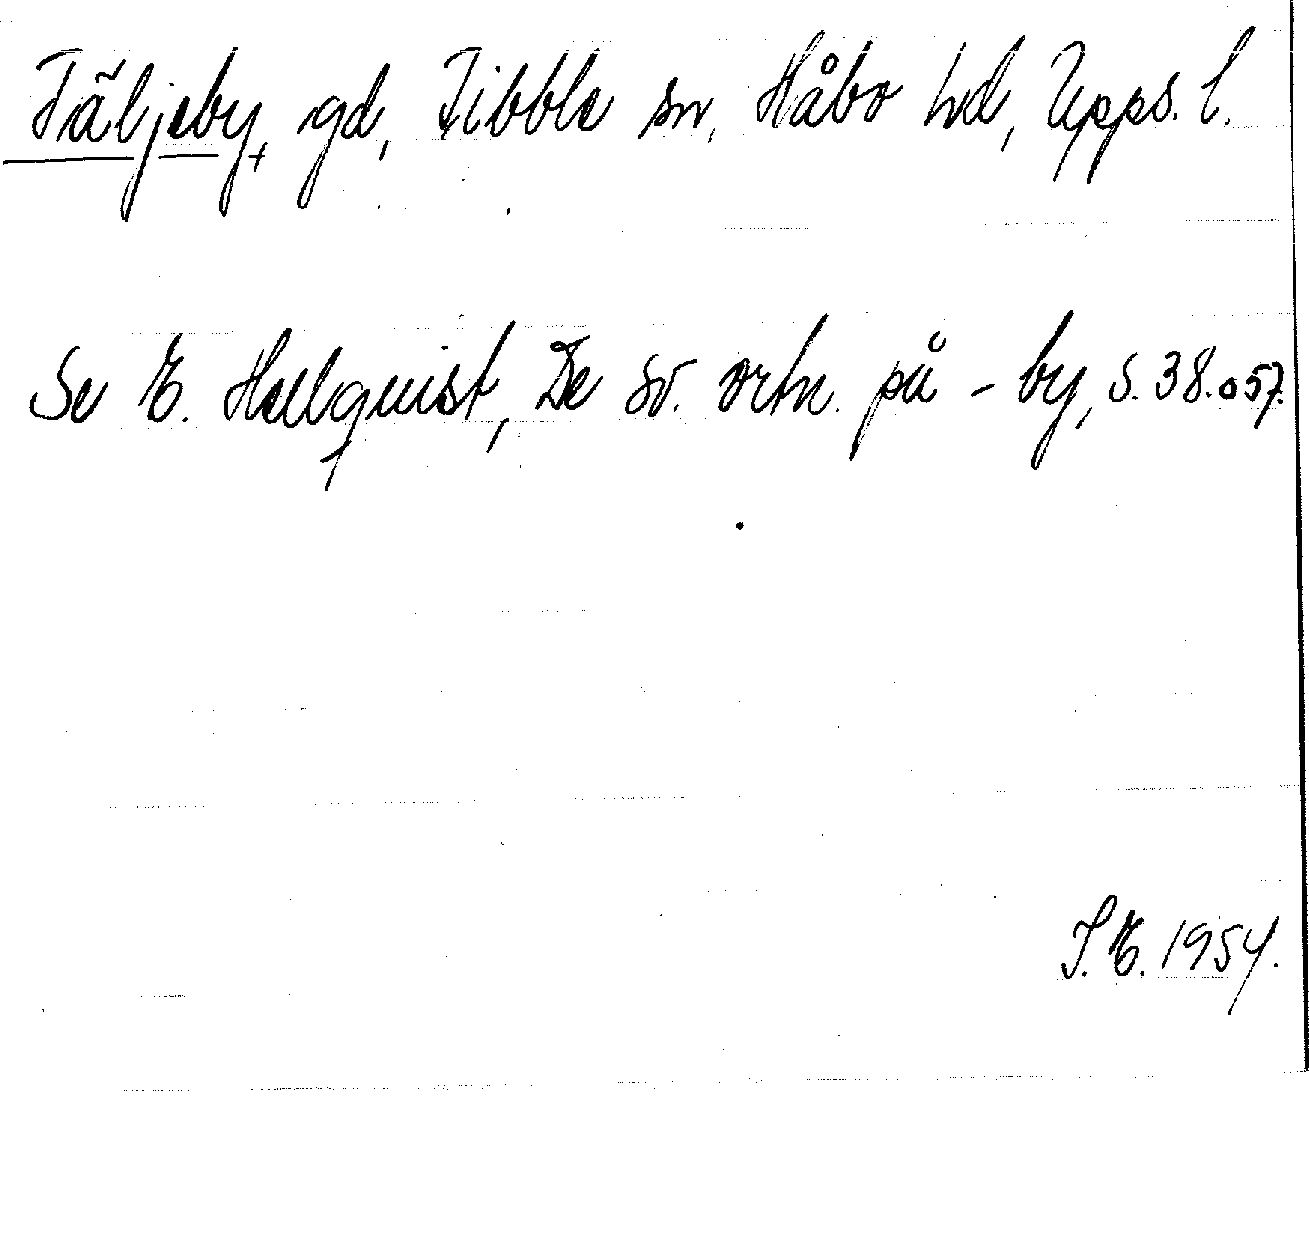 Täljeby, gd, Tibble sn, Håbo hd, Upps. l.
Se E. Hellquist, De sv. ortn. på -by, s. 38. o 57.
S. E. 1954.